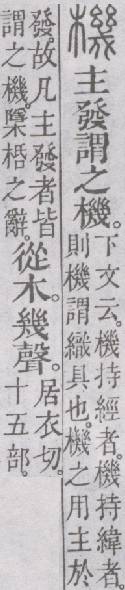 機主發謂之機。下文云。機持經者。機持緯者。則機謂織具也。機之用主於
發。故凡主發者皆謂之機。檃桰之辭。從木。幾聲。居衣切。十五部。